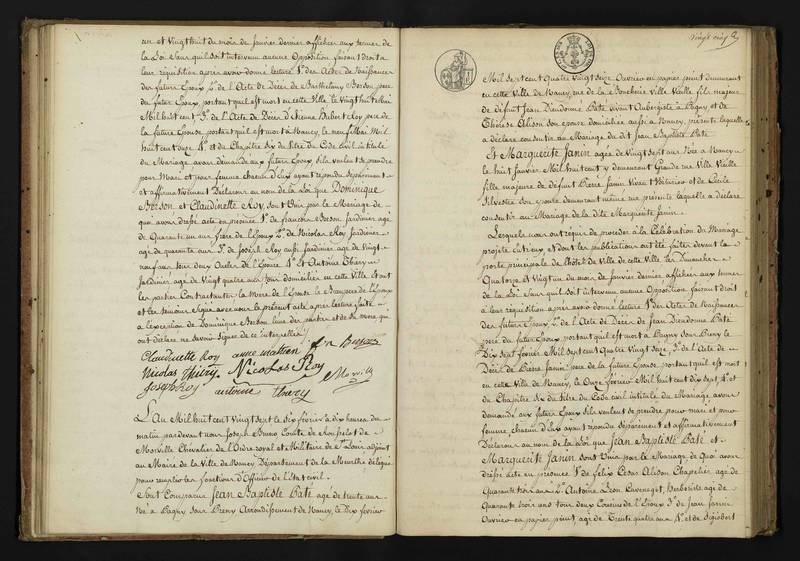 un et Vingt huit du mois de Janvier dernier afficher aux termes de
la Loi sans qu'il soit intervenu aucune Opposition faisant Droit a
leur réquisition après avoir donné lecture 1° des Actes de Naissances
des future Epoux 2° de l'Acte de Décès de Barthelemy Bordon, pere
du futur Epoux, portant qu'il est mort en cette Ville, le Vingt huit Mai
Mil huit cent 3° de l'Acte de Décès d'Etienne Hubert Roy pere de
la future Epouse, portant qu'il est mort à Nancy, le neuf Mai Mil
huit cent onze 4° et du Chapitre six du titre du Code civil intitulé
du Mariage avons demandé aux futurs Epoux s'ils veulent se prendre
pour Mari et pour femme chacun d'eux ayant répondu séparément
et affirmativement Déclarons au nom de la Loi que Dominique
Bordon et Claudinette Roy, sont Unis par le Mariage de
quoi avons dressé acte en présence 1° de françois Bordon Jardinier agé
de Quarante un ans frere de l'Epoux 2° de Nicolas Roy Jardinier
agé de quarante ans 3° de Joseph Roy aussi Jardinier agé de Vingt
neuf ans tous deux Oncles de l'Epouse 4° et Antoine Thiery
Jardinier agé de Vingt quatre ans tous domiciliés en cette Ville et ont
les parties Contractantes, la Mere de l'Epouse le Beau pere de l'Epoux
et les témoins signé avec nous le présent acte après lecture faite
a l'exception de Dominique Bordon l'une des parties et de sa mere qui
ont déclaré ne savoir signer de ce interpellés
Claudinette Roy anne mathieu
Nicolas thiéry Nicolas Roy
Joseph Roy antoine thiery
L'An Mil huit cent Vingt sept le dix février à dix heures du
matin pardevant nous Joseph Bruno Comte de
Morville Chevalier de l'Ordre royal et Militaire de St Louis adjoint
au Maire de la Ville de Nancy Département de la Meurthe délégué
pour remplir les fonctions d'Officier de l'Etat civil.
Sont Comparus Jean Baptiste Paté agé de trente ans
Né a Pagny sous Preny Arrondissement de Nancy, le Dix février
Vingt cinq
Mil sept cent Quatre Vingt Seize Ouvrier en papier peint demeurant
en cette Ville de Nancy, rue de la Boucherie Ville Vieille fils majeur
de défunt Jean Dieudonné Paté vivant Aubergiste à Pagny et de
Thérèse Alison son epouse domiciliée aussi a Nancy, présente laquelle
a déclaré consentir au Mariage du dit Jean Baptiste Paté
Et Marguerite Janin agée de Vingt sept ans Née a Nancy
le huit Janvier Mil huit cent y demeurant Grande rue Ville Vieille
fille majeure de défunt Pierre Janin Vivant Voiturier et de Cécile
Silvestre son epouse demeurant même rue présente laquelle a déclaré
consentir au Mariage de la dite Marguerite Janin
Lesquels nous ont requis de procéder à la Célébration du Mariage
projetté entr'eux et dont les publications ont été faites devant la
porte principale de l'hôtel de Ville de cette Ville les Dimanches
Quatorze et Vingt un du mois de janvier dernier afficher aux termes
de la Loi sans qu'il soit intervenu aucune Opposition faisant droit
a leur réquisition après avoir donné lecture 1° des Actes de Naissances
des futurs Epoux 2° de l'Acte de Décès de Jean Dieudonné Paté
pere du futur Epoux portant qu'il est mort à Pagny sous Preny le
Dix sept février Mil sept cent Quatre Vingt Seize 3° de l'Acte de
Décès de Pierre Janin pere de la future Epouse portant qu'il est mort
en cette Ville de Nancy, le Onze février Mil huit cent dix sept 4° et
du Chapitre six du titre du Code civil intitulé du Mariage avons
demandé aux futurs Epoux s'ils veulent se prendre pour mari et pour
femme, chacun d'eux ayant répondu séparément et affirmativement
Déclarons au nom de la Loi que Jean Baptiste Paté et
Marguerite Janin sont Unis par le Mariage de Quoi avons
dressé acte en présence 1° de felix César Alison Chapelier agé de
Quarante trois ans 2° Antoine Léon Herboriste agé de
Quarante trois ans tous deux Cousins de l'Epoux 3° de Jean Janin
Ouvrier en papier peint, agé de Trente quatre ans 4° et de Sigisbert